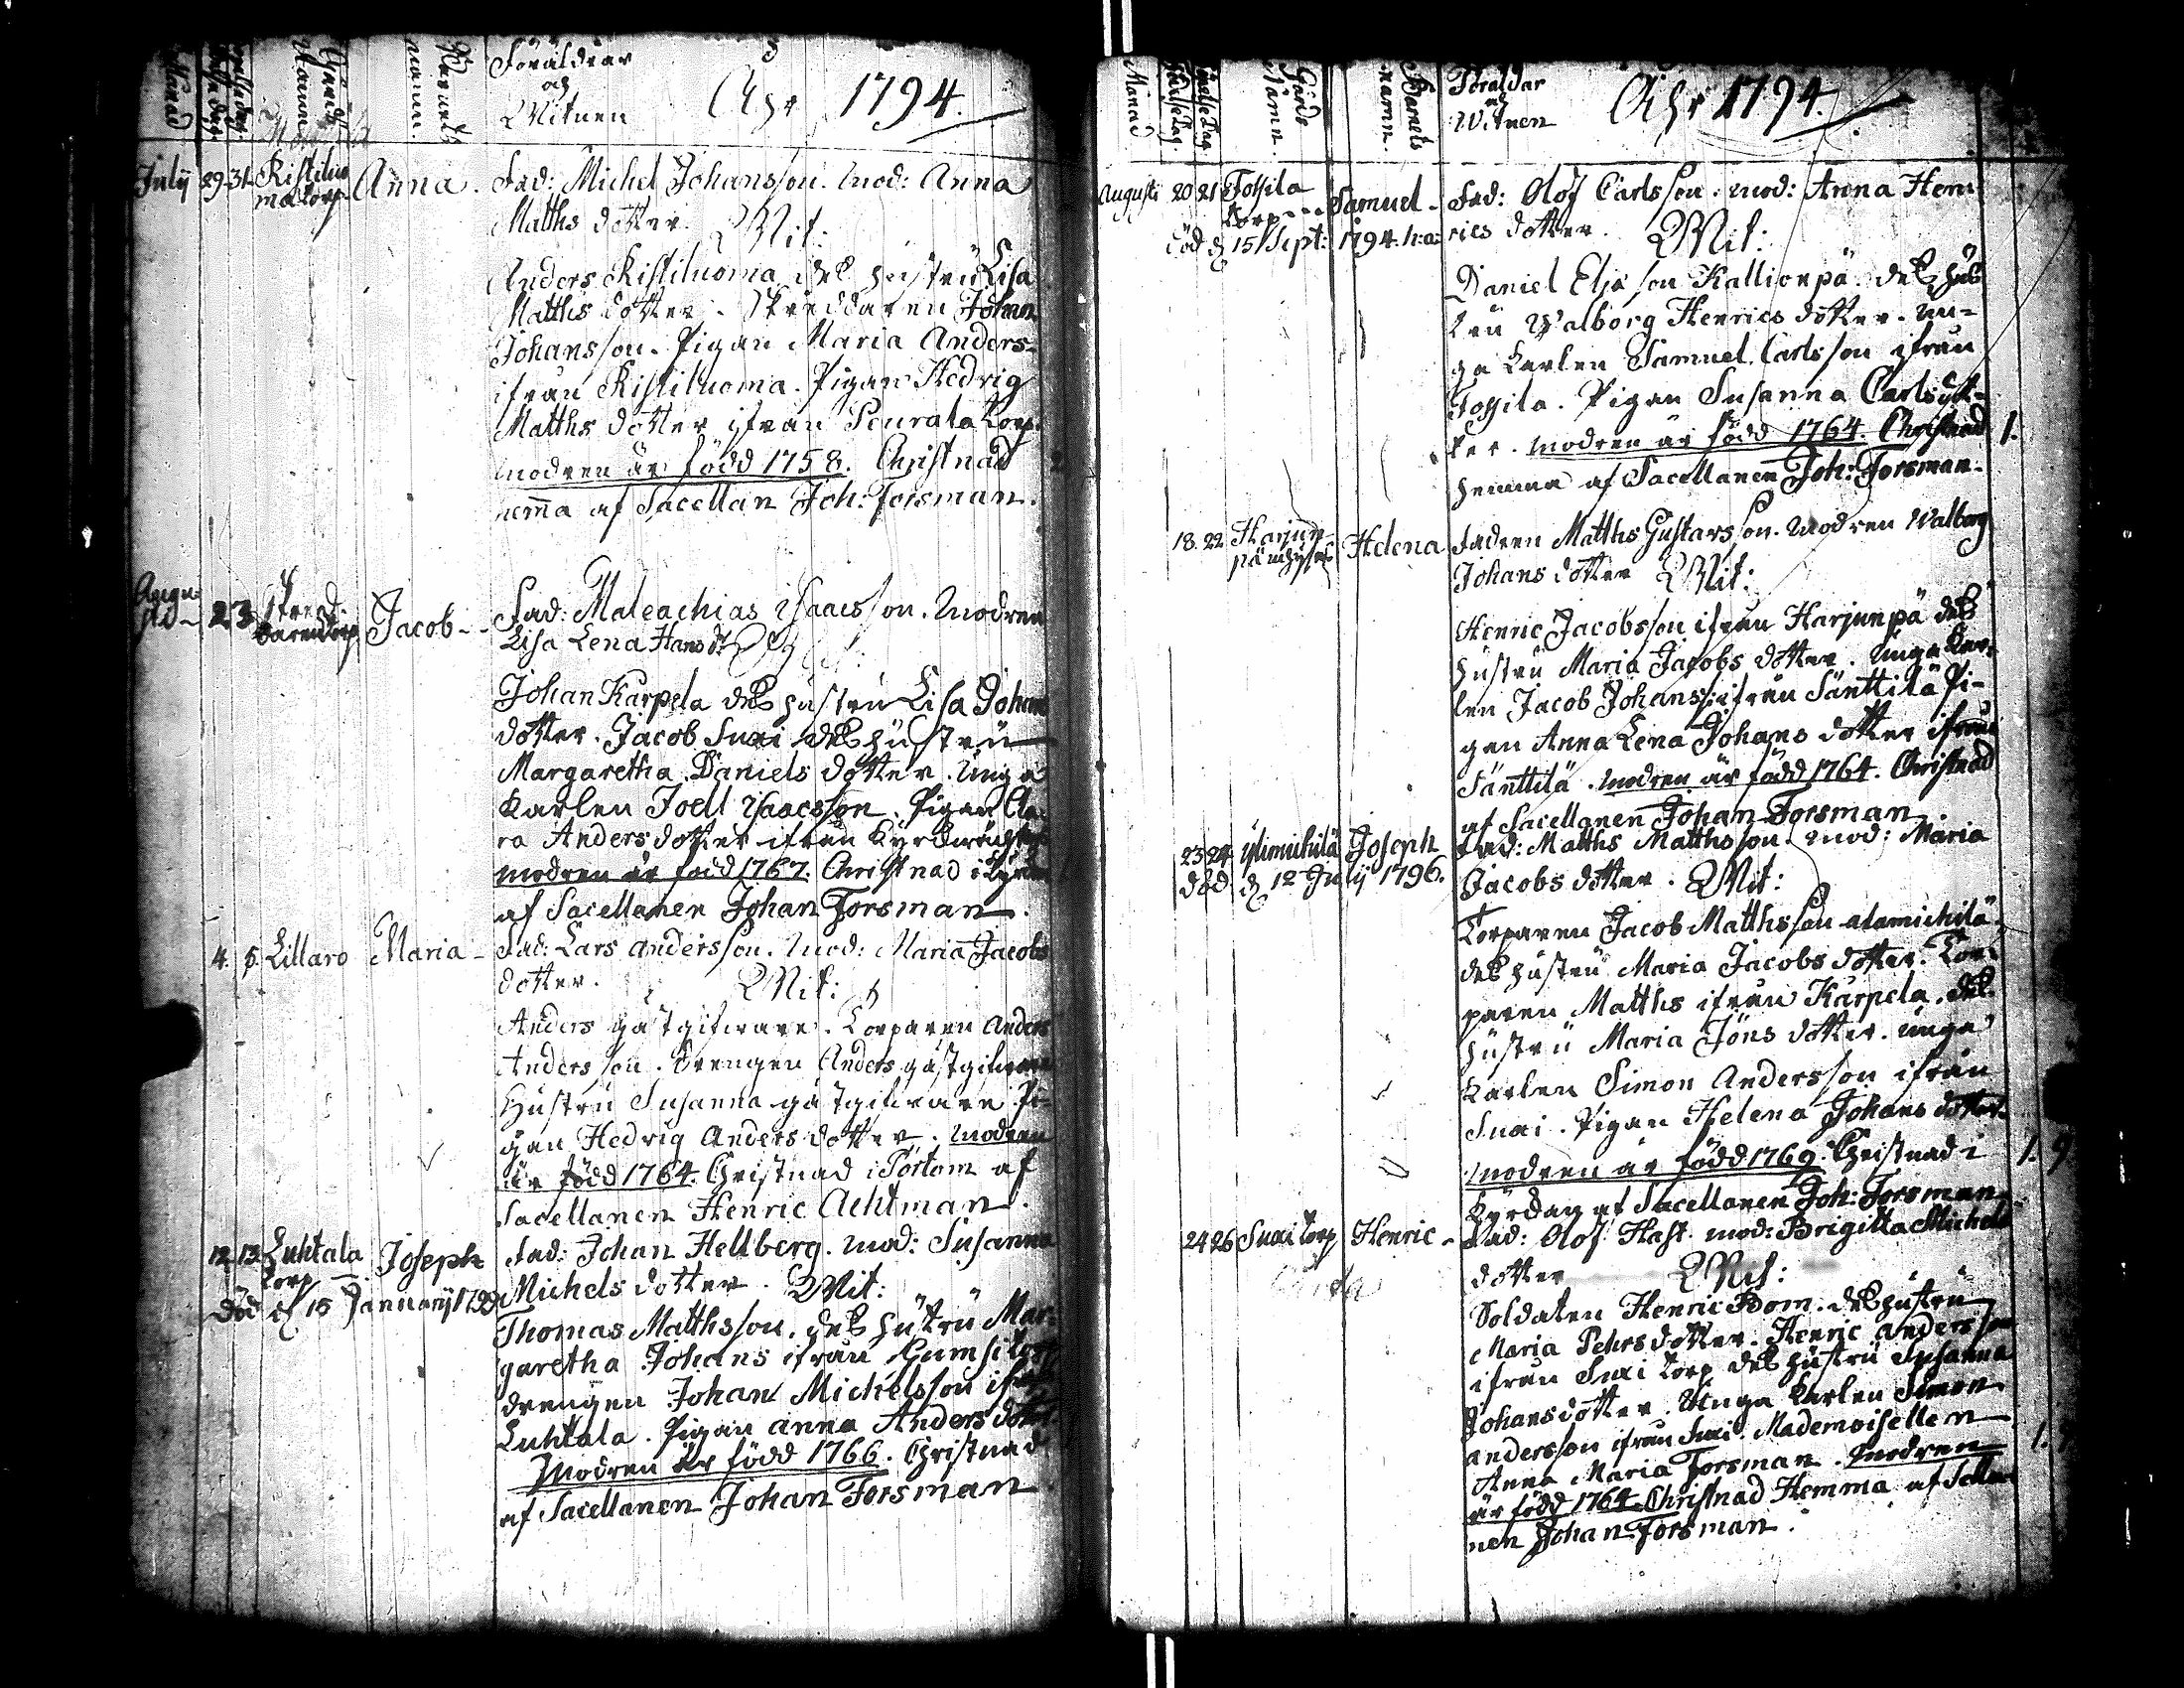 Månad
Födelse Dag
Christelse Dag
Gårds Namn
Barnets namn.
Föräldrar
och
Witnen
Åhr 1794.
July 29 31 Ristiluo Anna. Fad: Michel Johansson. Mod: Anna
ma torp
Matths dotter. Wit:
Anders Ristiluoma des hustru Lisa
Matths dotter. Skreddaren Johan
Johansson. Pigan Maria Anders-
ifrån Ristiluoma. Pigan Hedvig
Matths dotter ifrån Peurala torp.
modren är född 1758. Christnad
hemma af Sacellan Joh: Forsman.
Augu-
sti 2 3 Skred- Jacob- Fad: Maleachias Isaacsson. Modren
darentorp
Lisa Lena Hans dr Wit:
Johan Karpela des hustru Lisa Johans
dotter. Jacob Suxi des hustru
Margaretha Daniels dotter. Unga
Karlen Joell Isaacsson. Pigan Cla-
ra Anders dotter ifrån
modren är född 1767. Christnad i Kyrkan
af Sacellanen Johan Forsman.
4. 5. Lillaro Maria- Fad: Lars Andersson. Mod: Maria Jacobs
dotter. Wit:
Anders gästgifware. Torparen Anders
Andersson. Drengen Anders gästgifware
Hustru Susanna gästgifware Pi-
gan Hedvig Anders dotter. modren
är född 1764. Christnad i Pörtom af
Sacellanen Henric Achtman.
12. 13. Luhtala Joseph Fad: Johan Hellberg. mod: Susanna
torp
Död d 15 January Michels dotter. Wit:
Thomas Matthsson. des hustru Mar-
garetha Johans ifrån Gumsi torp
drengen Johan Michelsson ifrån
Luhtala. Pigan Anna Anders dotter
Modren är född 1766. Christnad
af Sacellanen Johan Forsman
Månad
Födelse Dag
Christelse Dag
Gårds Namn.
Barnets namn.
Föräldar
och
Witnen
Åhr 1794.
Augusti 20 21 Fossila Samuel- Fad: Olof Carlsson. mod: Anna Hen-
torp
död d 15 Sept: 1794. rics dotter. Wit:
Daniel Eliasson Kallionpä. des hus-
tru Walborg Henrics dotter. un-
ga karlen Samuel Carlsson ifrån
Fossila. Pigan Susanna Carlsdot-
ter. modren är född 1764. Christnad 1.
hemma af Sacellanen Joh: Forsman.
18. 22. Harjun- Helena Fadren Matths Gustavsson. modren Walborg
pä
Johans dotter Wit:
Henric Jacobsson ifrån Harjunpä des
hustru Maria Jacobs dotter. Unga kar-
len Jacob Johanss: ifrån Sänttilä Pi-
gan Anna Lena Johans dotter ifrån
Sänttilä. modren är född 1764. Christnad
af Sacellanen Johan Forsman
23 24 ylimichilä Joseph Fad: Matths Matthsson. mod: Maria
död d 12 July 1796. Jacobs dotter. Wit:
Torparen Jacob Matthsson alamichilä.
des hustru Maria Jacobs dotter. Tor-
paren Matths ifrån Karpela. des
hustru Maria Jöns dotter. unga
Karlen Simon Andersson ifrån
Suxi. Pigan Helena Johans dotter.
modren är född 1769. Christnad i 1.
Kyrkan af Sacellanen Joh: Forsman.
24 26 Suxi torp Henric- Fad: Olof Hast. mod: Brigitta Michels
dotter Wit:
Soldaten Henric Bom. des hustru
Maria Pehrs dotter. Henric Andersson
ifrån Suxi torp des hustru Susanna
Johansdotter. Unga Karlen Simon
Andersson ifrån Suxi. Mademoisellen
Anna Maria Forsman. modren 1.
är född 1764. Christnad Hemma af Sacella-
nen Johan Forsman.